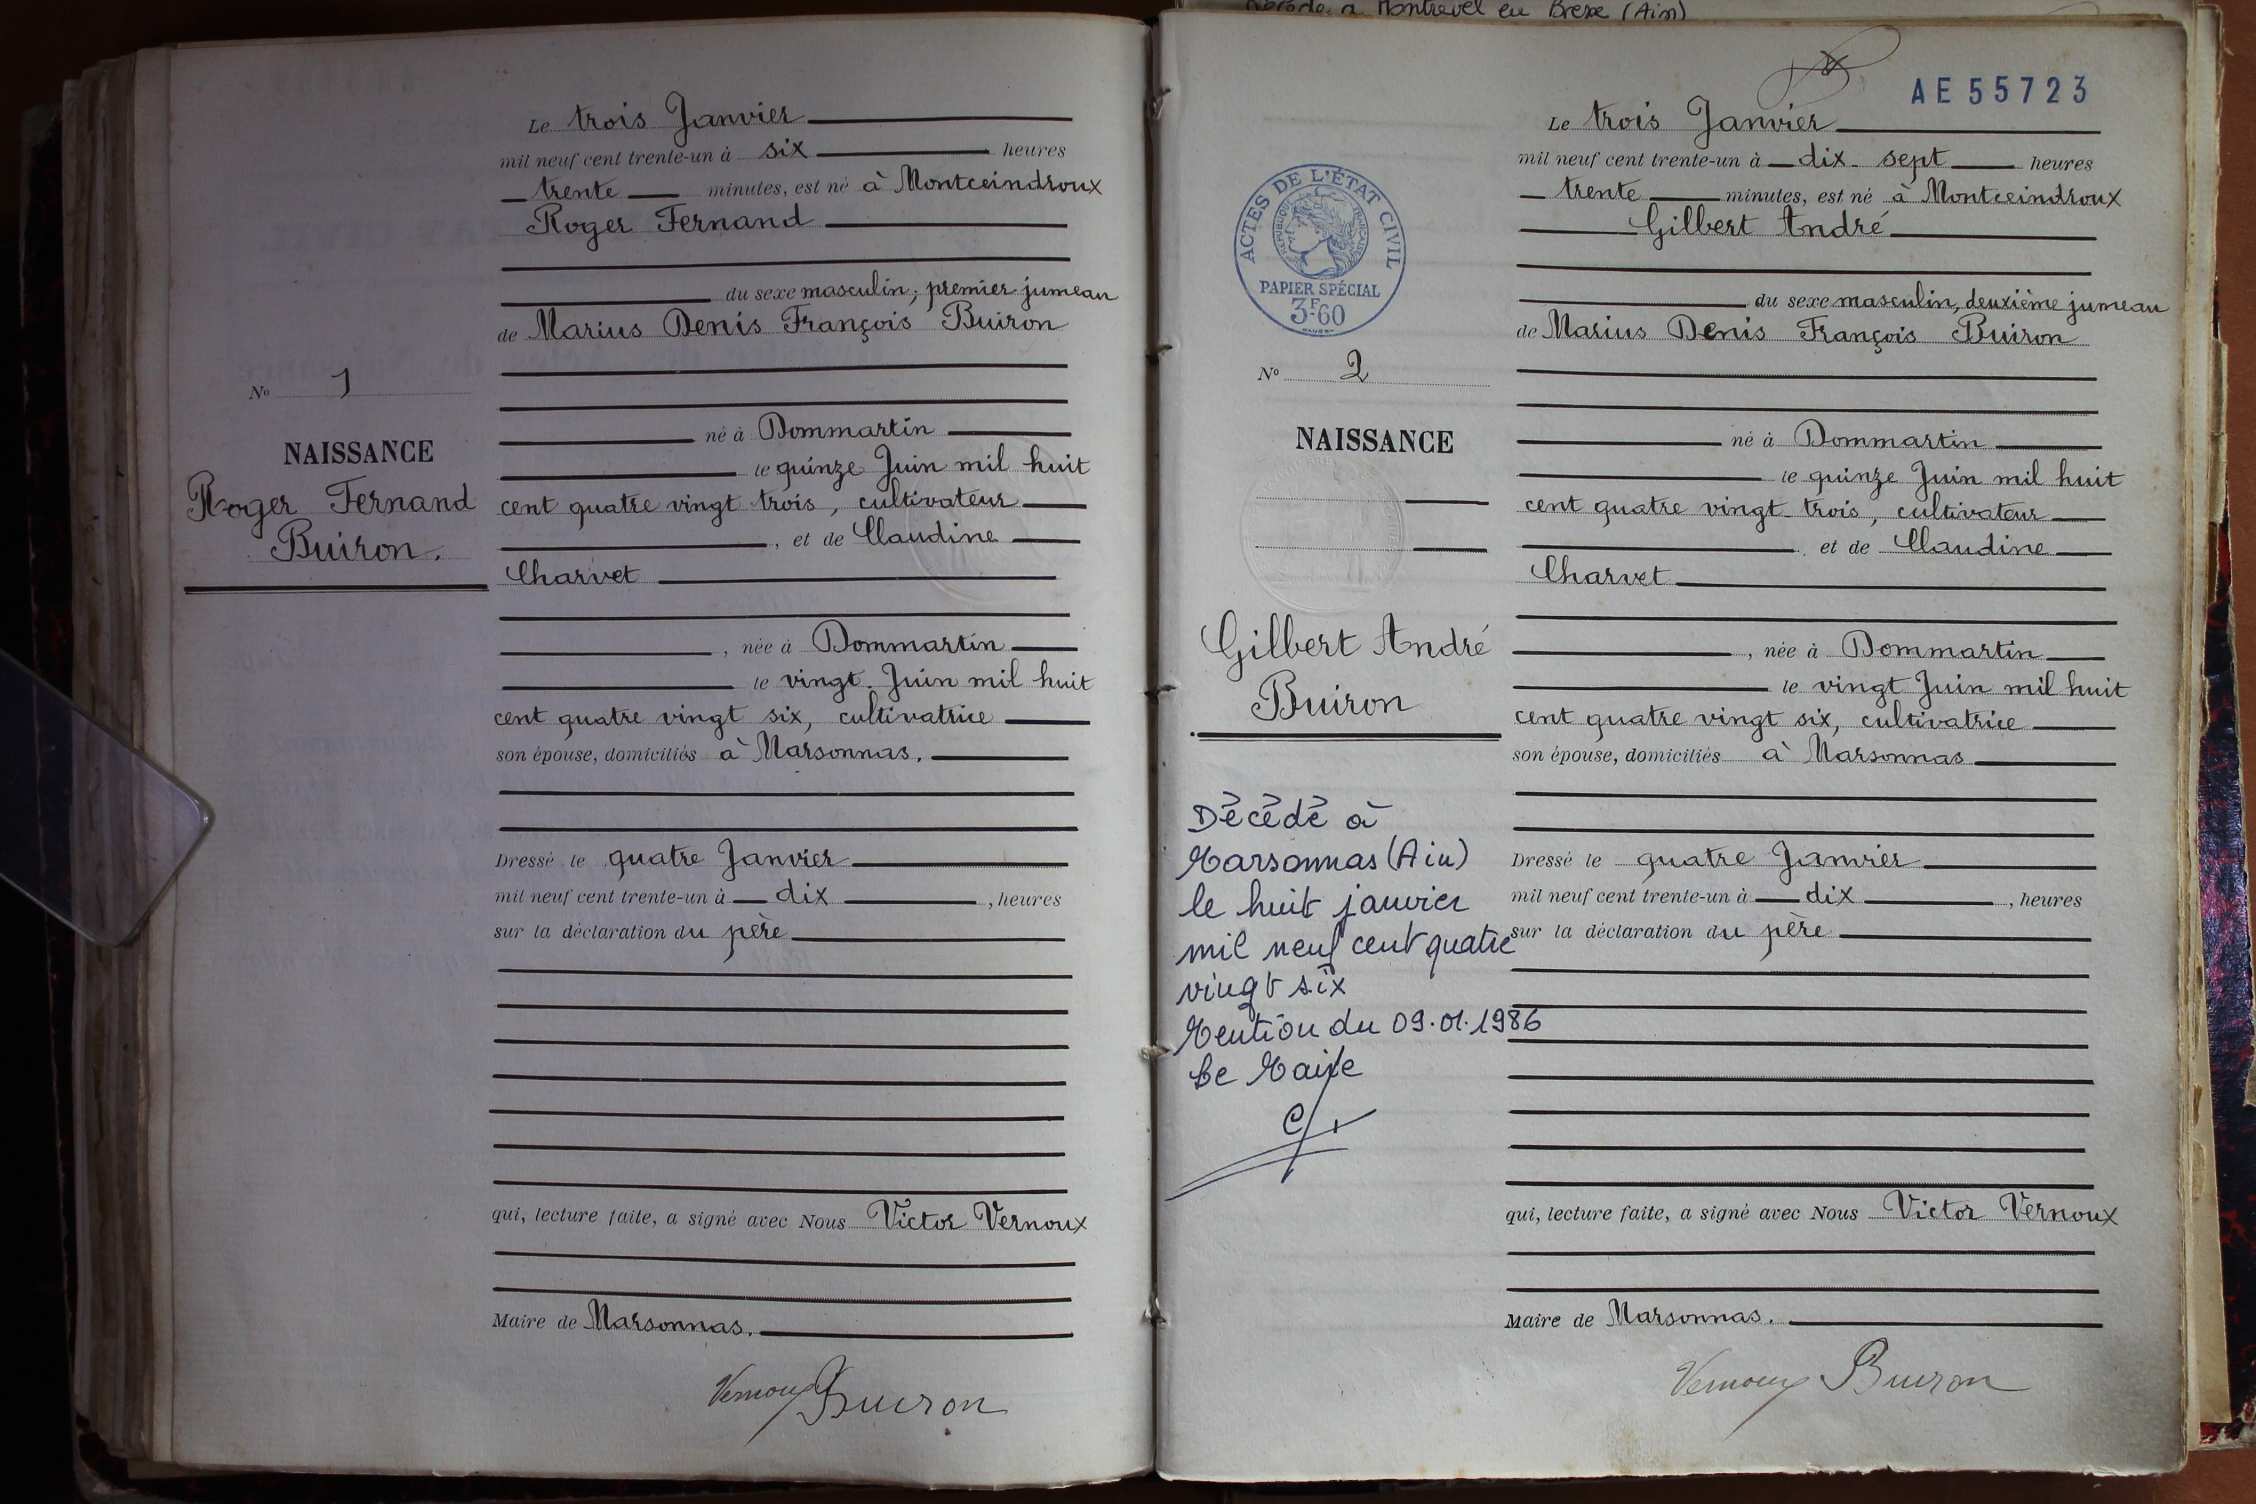 à Montrevel en Bresse (Ain)
Le trois Janvier
mil neuf cent trente-un à six heures
trente minutes, est né à Montceindroux
Roger Fernand
du sexe masculin, premier jumeau
de Marius Denis François Buiron
né à Dommartin
le quinze Juin mil huit
cent quatre vingt trois, cultivateur
, et de Claudine
Charvet
, née à Dommartin
le vingt Juin mil huit
cent quatre vingt six, cultivatrice
son épouse, domiciliés à Marsonnas.
Dressé le quatre Janvier
mil neuf cent trente-un à dix , heures
sur la déclaration du père
qui, lecture faite, a signé avec Nous Victor Vernoux
Maire de Marsonnas.
Vernoux Buiron
No 1
NAISSANCE
Roger Fernand
Buiron.
AE 55723
Le trois Janvier
mil neuf cent trente-un à dix sept heures
trente minutes, est né à Montceindroux
Gilbert André
du sexe masculin, deuxième jumeau
de Marius Denis François Buiron
né à Dommartin
le quinze Juin mil huit
cent quatre vingt trois, cultivateur
et de Claudine
Charvet
, née à Dommartin
le vingt Juin mil huit
cent quatre vingt six, cultivatrice
son épouse, domiciliés à Marsonnas
Dressé le quatre Janvier
mil neuf cent trente-un à dix , heures
sur la déclaration du père
qui, lecture faite, a signé avec Nous Victor Vernoux
Maire de Marsonnas.
Vernoux Buiron
ACTES DE L'ÉTAT CIVIL
RÉPUBLIQUE FRANÇAISE
PAPIER SPÉCIAL
3F60
No 2
NAISSANCE
Gilbert André
Buiron
Décédé à
Marsonnas (Ain)
le huit janvier
mil neuf cent quatre
vingt six
Mention du 09.01.1986
Le Maire